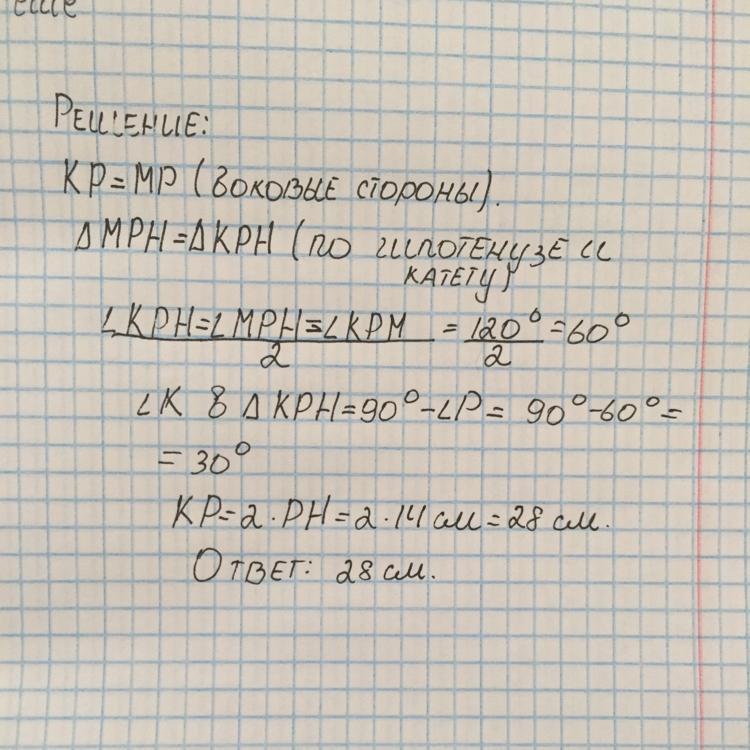 еще
Решение:
KP=MP (боковые стороны).
ΔMPH=ΔKPH (по гипотенузе и
катету)
∠KPH=∠MPH=∠KPM/2 = 120°/2 = 60°
∠K в ΔKPH=90°-∠P= 90°-60°=
= 30°
KP=2·PH=2·14 см=28 см.
Ответ: 28 см.